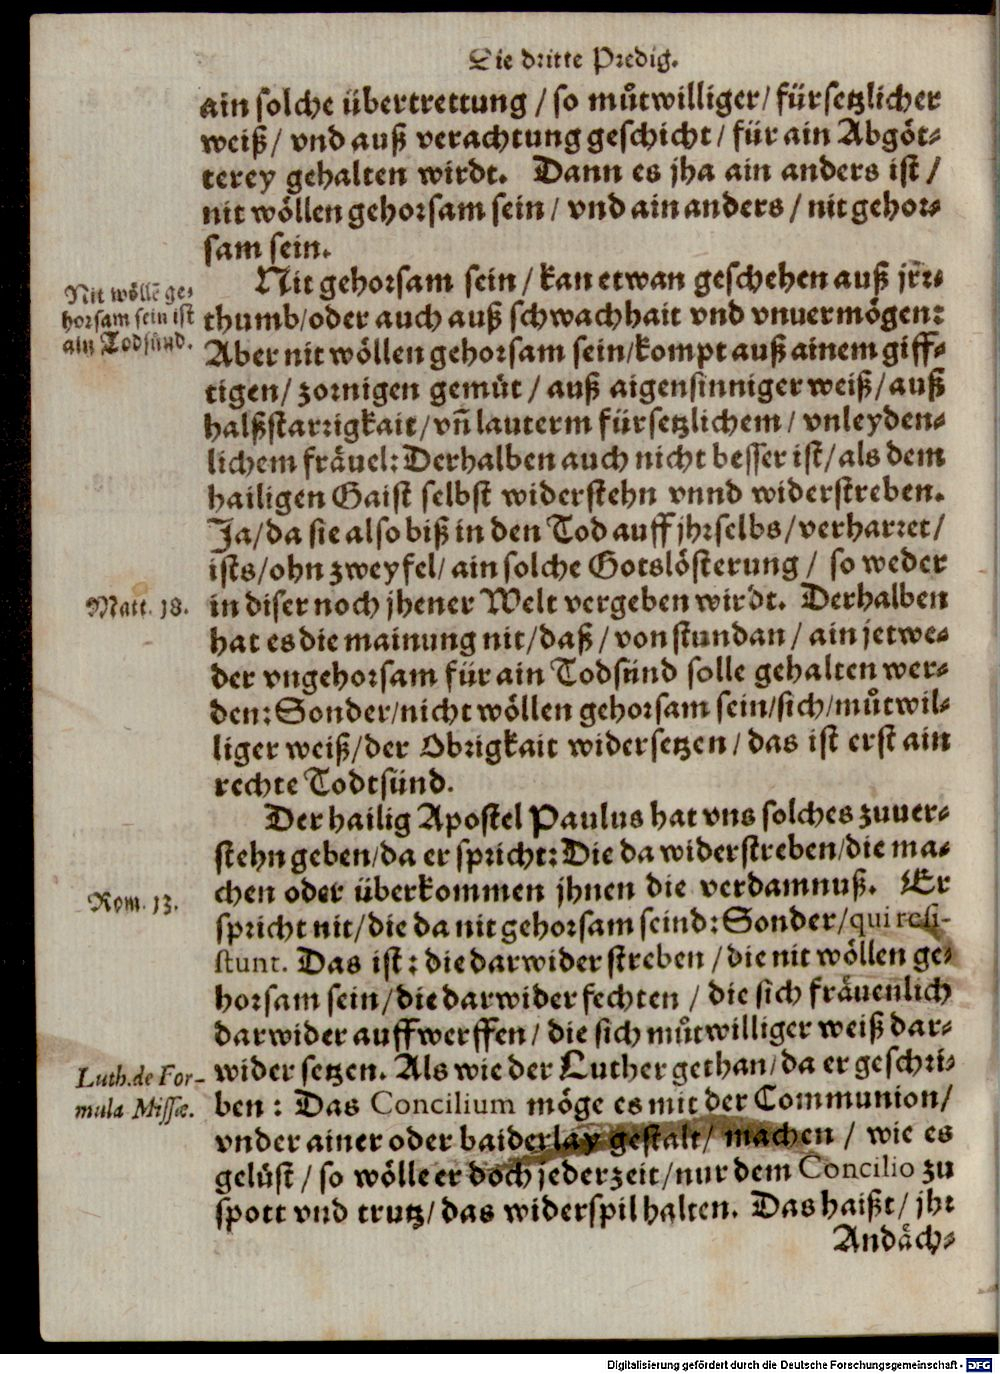 Die dritte Predig.
ain solche übertrettung / so můtwilliger / fürsetzlicher
weiß / vnd auß verachtung geschicht / für ain Abgöt-
terey gehalten wirdt. Dann es jha ain anders ist /
nit wöllen gehorsam sein / vnd ain anders / nit gehor-
sam sein.
Nit gehorsam sein / kan etwan geschehen auß jrr-
Nit wöllē ge-
horsam sein ist
ain Todsünd.
thumb / oder auch auß schwachhait vnd vnuermögen:
Aber nit wöllen gehorsam sein / kompt auß ainem giff-
tigen / zornigen gemüt / auß aigensinniger weiß / auß
halßstarrigkait / vñ lauterm fürsetzlichem / vnleyden-
lichem fräuel: Derhalben auch nicht besser ist / als dem
hailigen Gaist selbst widerstehn vnnd widerstreben.
Ja / da sie also biß in den Tod auff jhr selbs / verharret /
ists / ohn zweyfel / ain solche Gotslösterung / so weder
Matt. 18.
in diser noch jhener Welt vergeben wirdt. Derhalben
hat es die mainung nit / daß / von stundan / ain jetwe-
der vngehorsam für ain Todsünd solle gehalten wer-
den: Sonder / nicht wöllen gehorsam sein / sich / můtwil-
liger weiß / der Obrigkait widersetzen / das ist erst ain
rechte Todtsünd.
Der hailig Apostel Paulus hat vns solches zuuer-
stehn geben / da er spricht: Die da widerstreben / die ma-
Rom. 13.
chen oder überkommen jhnen die verdamnuß. Er
spricht nit / die da nit gehorsam seind: Sonder / qui resi-
stunt. Das ist: die darwider streben / die nit wöllen ge-
horsam sein / die darwider fechten / die sich fräuenlich
darwider auffwerffen / die sich můtwilliger weiß dar-
Luth. de For-
mula Missæ.
wider setzen. Als wie der Luther gethan / da er geschri-
ben: Das Concilium möge es mit der Communion /
vnder ainer oder baiderlay gestalt / machen / wie es
gelüst / so wölle er doch jederzeit / nur dem Concilio zu
spott vnd trutz / das widerspil halten. Das haißt / jhr
Andäch-
Digitalisierung gefördert durch die Deutsche Forschungsgemeinschaft - DFG